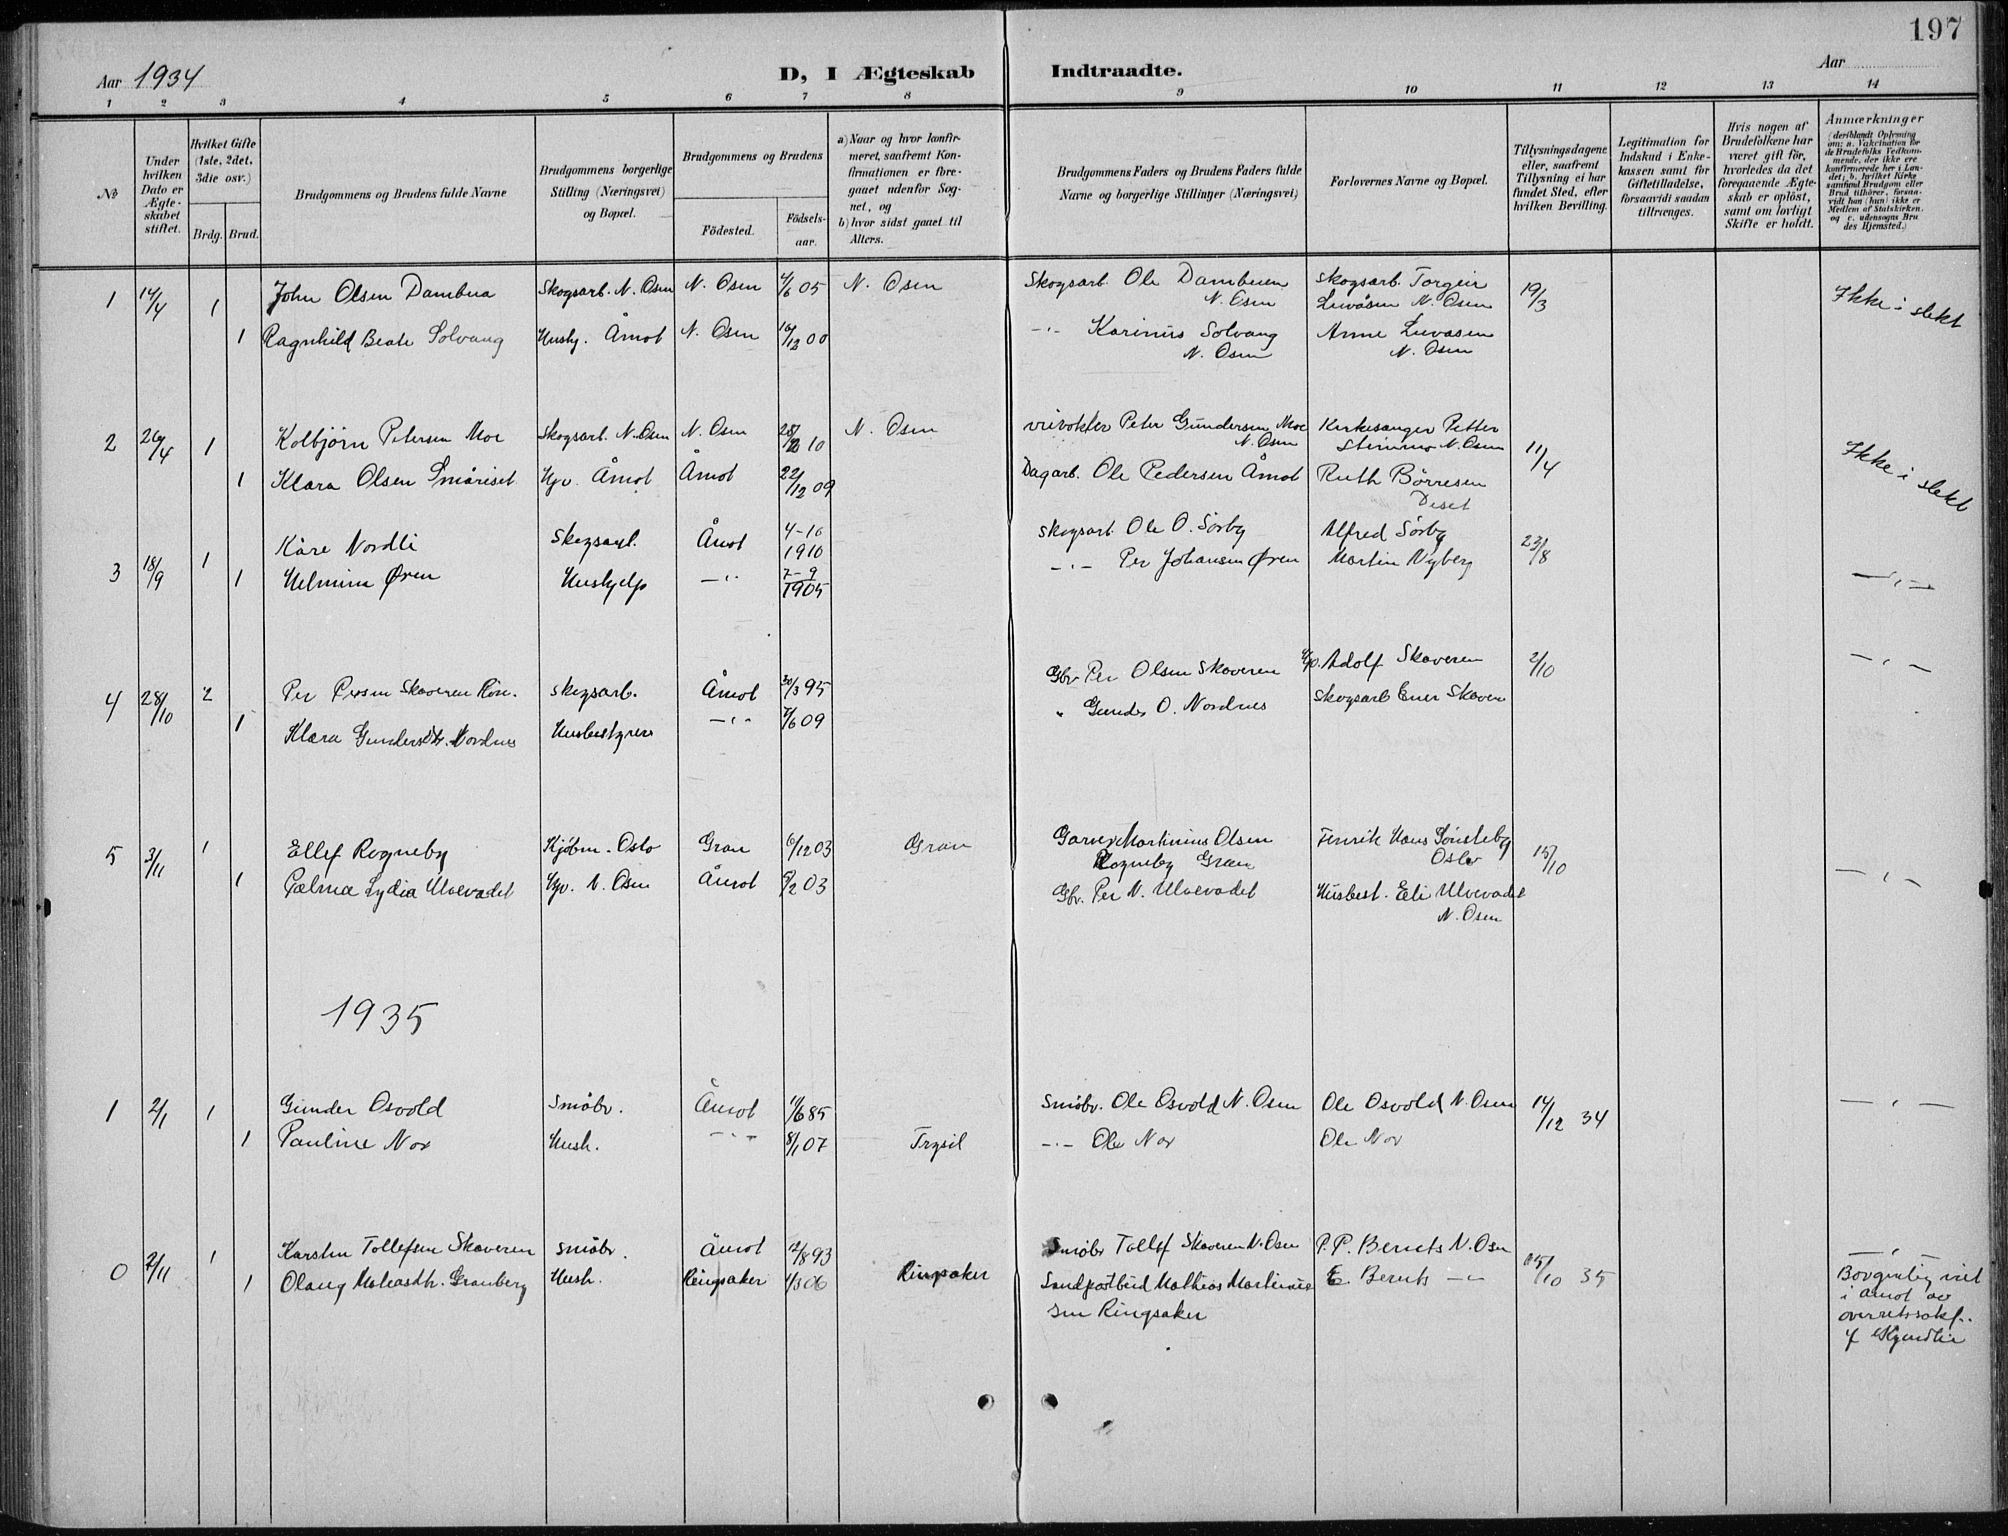 197
Aar 1934 D, I Ægteskab Indtraadte. Aar
1 2 3 4 5 6 7 8 9 10 11 12 13 14
№
Under hvilken Dato er Ægteskabet stiftet.
Hvilket Gifte (1ste, 2det, 3die osv.)
Brdg. Brud.
Brudgommens og Brudens fulde Navne
Brudgommens borgerlige Stilling (Næringsvei) og Bopæl.
Brudgommens og Brudens
Födested. Födsels-aar.
a) Naar og hvor konfir-
meret, saafremt Kon-
firmationen er fore-
gaaet udenfor Sog-
net, og
b) hvor sidst gaaet til
Alters.
Brudgommens Faders og Brudens Faders fulde
Navne og borgerlige Stillinger (Næringsvei)
Forlovernes Navne og Bopæl.
Tillysningsdagene
eller, saafremt
Tillysning ei har
fundet Sted, efter
hvilken Bevilling.
Legitimation for
Indskud i Enke-
kassen samt for
Giftetilladelse,
forsaavidt saadan
tiltrænges.
Hvis nogen af
Brudefolkene har
været gift för,
hvorledes da det
foregaaende Ægte-
skab er oplöst,
samt om lovligt
Skifte er holdt.
Anmærkninger
(deriblandt Oplysning
om: a. Vaccination for
de Brudefolks Vedkom-
mende, der ikke ere
konfirmerede her i Lan-
det; b. hvilket Kirke-
samfund Brudgom eller
Brud tilhörer, forsaa-
vidt han (hun) ikke er
Medlem af Statskirken.
og c. udensogns Bru-
des Hjemsted.)
1 14/4 1 John Olsen Dambua Skogsarb. N. Osen N. Osen 4/6 05 N. Osen Skogsarb. Ole Dambuen N. Osen Skogsarb. Torgeir Luvåsen N. Osen 19/3 Ikke i slekt
1 Ragnhild Beate Solvang Hushj. Åmot N. Osen 10/12 00 -"- Karinius Solvang N. Osen Anne Luvasen N. Osen
2 26/4 1 Kolbjörn Petersen Moe Skogsarb. N. Osen N. Osen 10 N. Osen Peter Gundersen Moe N. Osen Kirkesanger Petter N. Osen 11/4 Ikke i slekt
1 Klara Olsen Småriset Hjv. Åmot Åmot 22/12 09 Dagarb. Ole Pedersen Åmot Ruth Börresen Deset
3 18/9 1 Kåre Nordli Skogsarb. Åmot 4-10 1910 Skogsarb. Ole O. Sörby Alfred Sörby 23/8
1 Helmine Øren Hushjelp -"- 7-9 1905 -"- Per Johansen Øren Martin Nyberg -"-
4 28/10 2 Per Persen Skaveren Skogsarb. Åmot 20/3 95 Gbr. Per Olsen Skaveren Adolf Skaveren 2/10 -"-
1 Klara Gundersdtr. Nordnes Husbestyrer -"- 7/6 09 " Gunder O. Nordnes Skogsarb. Skaven
5 3/11 1 Ellef Rogneby Kjöbm. Oslo Gran 6/12 03 Gran Garver Martinius Olsen Rogneby Gran Hans Sönsteby Oslo 15/10
1 Palma Lydia Ulvevadet Hjv. N. Osen Åmot 9/2 03 Gbr. Per N. Ulvevadet Husbest. Eli Ulvevadet N. Osen -"-
1935
1 2/1 1 Gunder Osvold Småbr. Åmot 11/6 85 Småbr. Ole Osvold N. Osen Ole Osvold N. Osen 14/12 34 -"-
1 Pauline Nor Hush. -"- 8/1 07 Trysil -"- Ole Nor Ole Nor
0 2/11 1 Karsten Tollefsen Skaveren Småbr. Åmot 2/8 93 Småbr Tollef Skaveren N. Osen P. P. Beruts N. Osen 15/10 35 -"-
1 Olaug Mateasdtr. Granberg Hush. Ringsaker 4/3 06 Ringsaker Landpostbud Mathias Martinius-
sen Ringsaker E. Beruts -"-
Borgerlig viet
i Åmot av
overrettssakf.